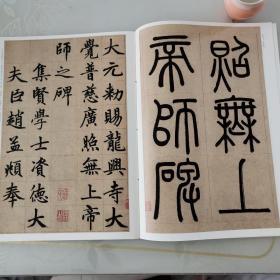 照無上
帝師碑
大元勅賜龍興寺大
覺普慈廣照無上帝
師之碑
集賢學士資德大
夫臣趙孟頫奉